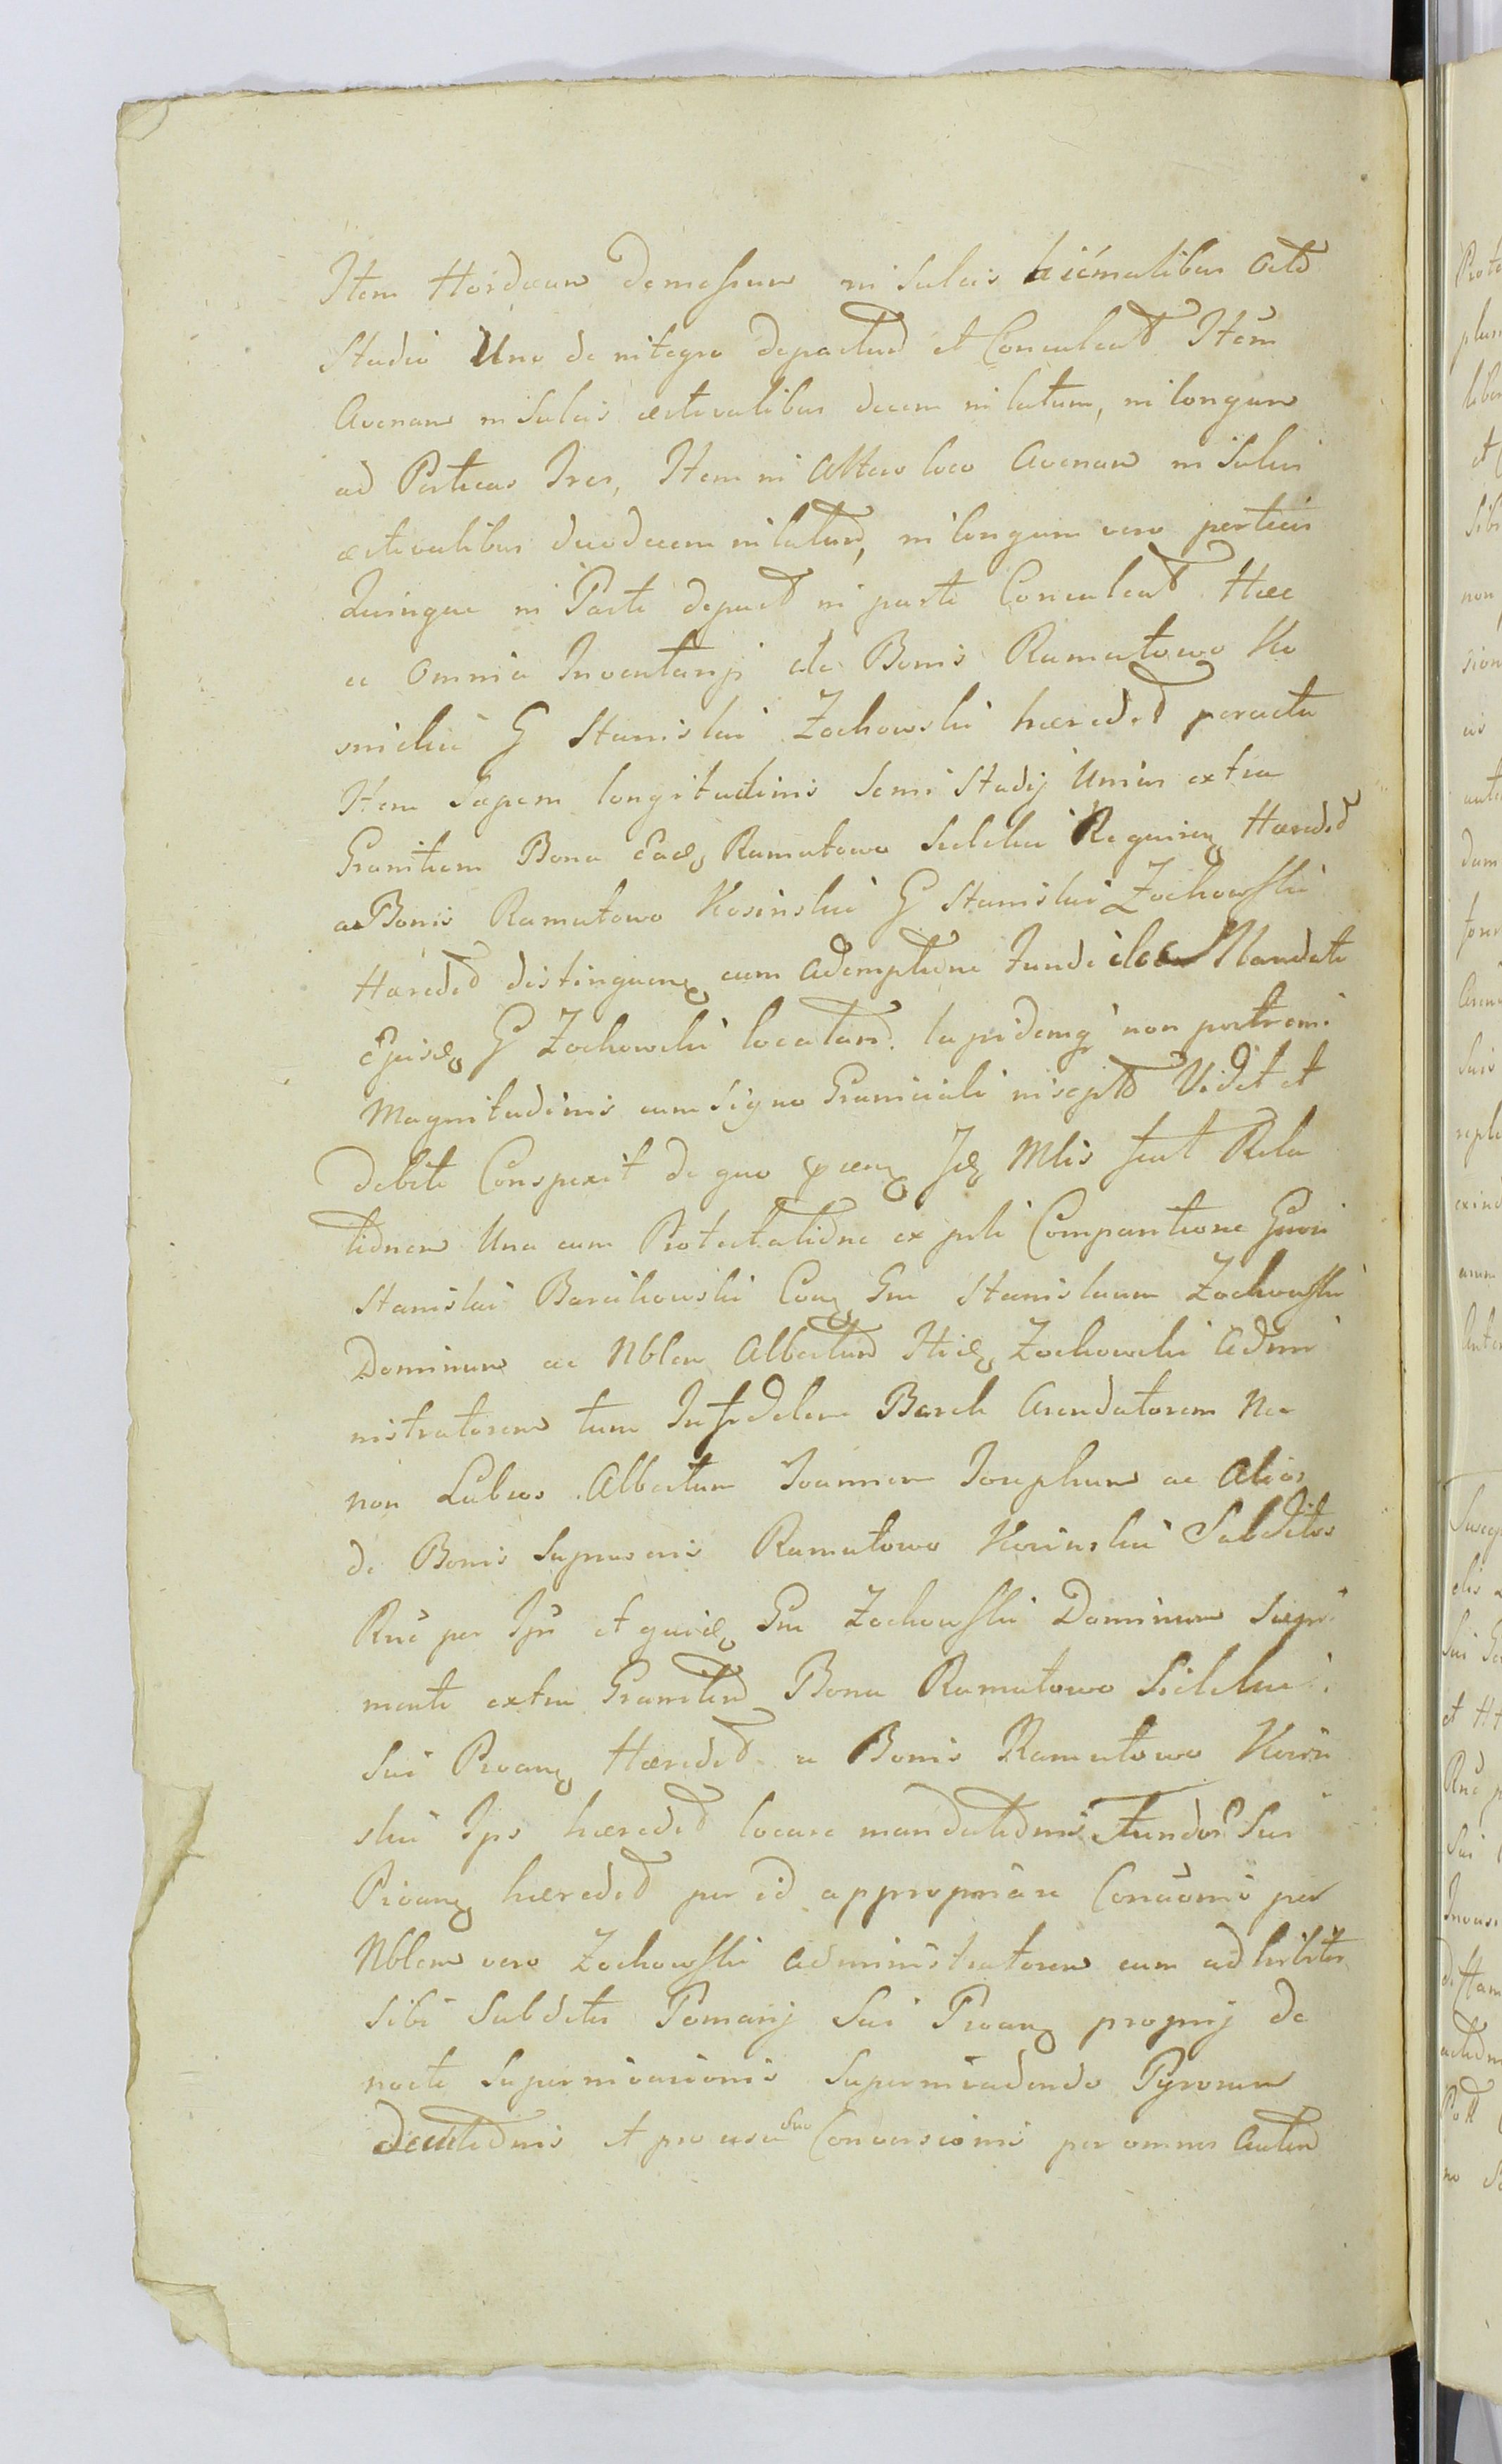 Item Hordeum demessum in Sulcis hiémalibus octo
Stadio Uno de integro depactum et Conculcat Item
Avenam in Sulcis aestivalibus decem in latum, in longum
ad Perticas Tres, Item in Altero loco Avenam in Sulcis
aestivalibus duodecem in latum, in longum vero perticis
Quinque in Parte depact in parte Conculcat Haec
ac omnia Inventarij de Bonis Ramutowo Ko
sinskie G Stanislai Zochowski haered peracta
Item Saepem longitudinis Semi Stadij Unius extra
Granitiem Bona Ramutowo Sielskie Haered
a Bonis Ramutowo Kosinskie G Stanislai Zochowski
Haered distinguen cum Ademptione Fundi Mandato
Ejusd G Zochowski locatam lapidemq non postremi
Magnitudinis cum Signo Graniciali Vidit et
debite Conspexit de quo Mlis fecit Rela
tionem Una cum Protestatione ex parte Comparitione Gnosi
Stanislai Barcikowski Con Gm Stanislaum Zochowski
Dominum ac Nblem Albertum Zochowski Admi
nistratorem tum Infidelem Berek Arendatorem Nec
non Labros Albertum Joannem Josephum ac Alios
de Bonis Ramutowo Kosinskie Subditos
Rne per Gm Zochowski Dominum Saepi
mento extra Granitiem Bona Ramutowo Sielskie
Sui Haered a Bonis Ramutowo Kosin
skie Ips haered locare mandationis Fundos Sui
haered per id appropriare per
Nblem vero Zochowski administratorem cum adhibitis
Sibi Subditis Pomarij Sui proprij de
nocte Superinvasionis Superinvadendo Pyrorum
et pro usu suo Conversionis per omnes